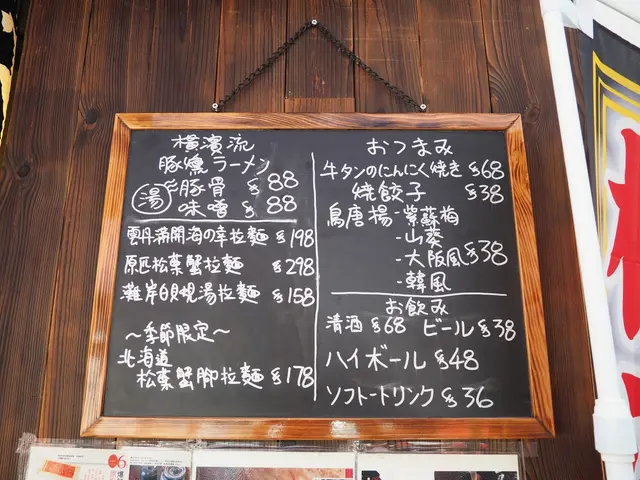 横濱流
豚燻ラーメン
湯 豚骨 $88
味噌 $88
雲丹満開海の幸拉麺 $198
原匹松葉蟹拉麺 $298
灘岸白貝蜆湯拉麺 $158
～季節限定～
北海道
松葉蟹脚拉麺 $178
おつまみ
牛タンのにんにく焼き $68
焼餃子 $38
鳥唐揚 - 紫蘇梅
- 山葵
- 大阪風 $38
- 韓風
お飲み
清酒 $68 ビール $38
ハイボール $48
ソフトートリンク $36